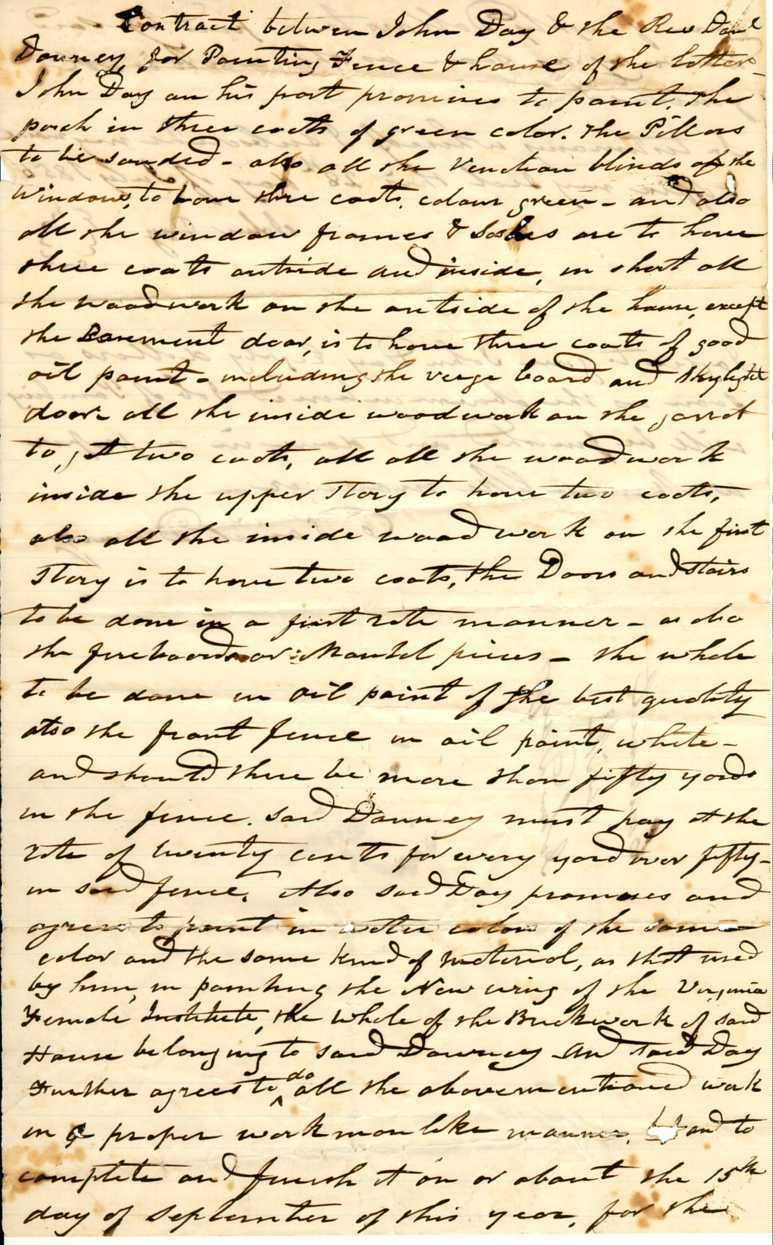 Contract betwen John Day & the Rev Danl
Downey for Painting Fence & house of the latter—
John Day on his part promises to paint, The
porch in three coats of green color. The Pillars
to be sanded – also all the Venetian blinds of the
windows, to have three coats, colour green – and also
all the window frames & Sashes are to have
three coats outside and inside, in short all
the woodwork on the outside of the house, except
the Basement door, is to have three coats of good
oil paint – including the verge board and skylight
door all the inside woodwork on the garret
to, get two coats, all all the woodwork
inside the upper story to have two coats,
also all the inside wood work on the first
story is to have two coats, the Doors and stairs
to be done in a first rate manner – as also
the fireboards or Mantel pieces – the whole
to be done in oil paint of the best quality
also the front fence in oil paint, white –
and should there be more than fifty yards
in the fence. said Downey must pay at the
rate of twenty cents for every yard over fifty –
in said fence. Also said Day promises and
agrees to paint in water colors of the same
color and the same kind of material, as that used
by him, in painting the New wing of the Virginia
Female Institute, the whole of the Brickwork of said
House belonging to said Downey And said Day
Further agrees to do all the abovementioned work
in a proper workmanlike manner, and to
complete and finish it on or about the 15th
day of September of this year, for the